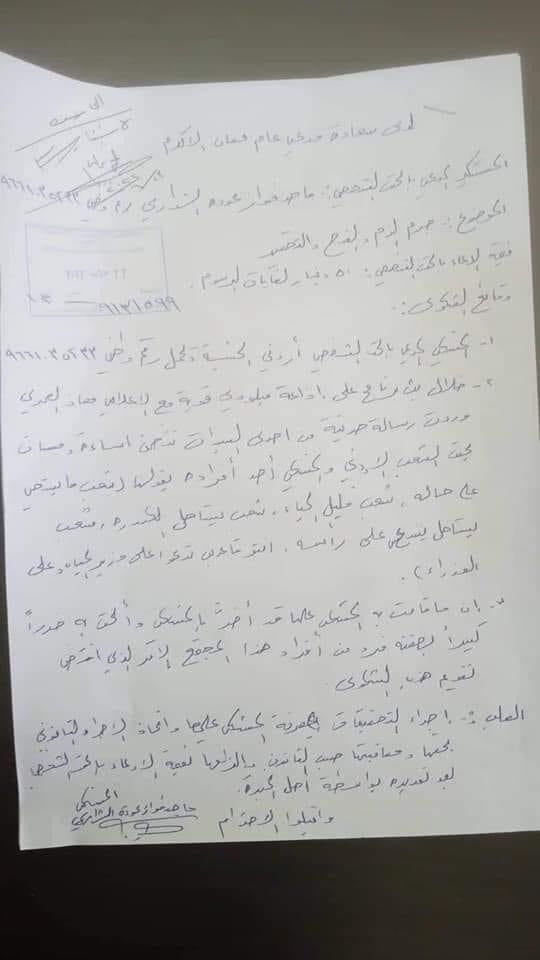 لدى سعادة مدعي عام عمان الاكرم
المشتكي المدعي بالحق الشخصي: ماجد فواز عوده الشوابري رقم وطني ٩٦٦١٠٣٥٢٣٢
الموضوع: جرم الذم والقدح والتحقير
قيمة الادعاء بالحق الشخصي: ٥٠ دينار لغايات الرسوم.
٩١٣١٥٩٩
وقائع الشكوى:
١- المشتكي المدعي بالحق الشخصي أردني الجنسية ويحمل رقم وطني ٩٦٦١٠٣٥٢٣٢
٢- خلال بث برنامج على إذاعة ميلودي قدمه مع الاعلامي معاذ العمري
وردت رسالة صوتية من احدى السيدات تتضمن اساءة ومساس
بحق الشعب الاردني والمشتكي أحد أفراده بقولها (شعب ما بيستحي
على حاله، شعب قليل الحياء، شعب بيستاهل الكندره، شعب
بيستاهل ينداس على رأسه، انتو شاعب تدعوا على وزير المياه وعلى
الوزراء).
٣- ان ما قامت به المشتكى عليها قد أضرت بالمشتكي وألحق به ضرراً
كبيراً بصفته فرد من أفراد هذا المجتمع الأمر الذي اقتضى
تقديم هذه الشكوى.
الطلب: اجراء التحقيقات لمعرفة المشتكى عليها واتخاذ الاجراء القانوني
بحقها ومعاقبتها حسب القانون والزامها بقيمة الادعاء بالحق الشخصي
بعد تقديره بواسطة أهل الخبرة.
واقبلوا الاحترام
المشتكي
ماجد فواز عودة